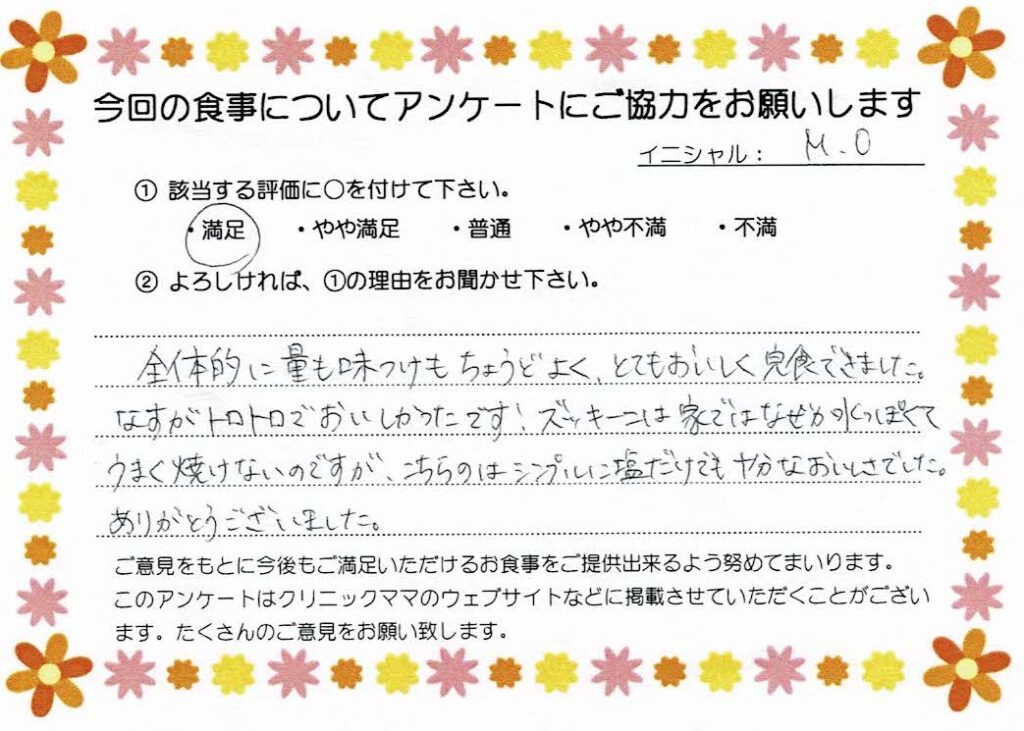 今回の食事についてアンケートにご協力をお願いします
イニシャル： M.O
① 該当する評価に○を付けて下さい。
・満足 ・やや満足 ・普通 ・やや不満 ・不満
② よろしければ、①の理由をお聞かせ下さい。
全体的に量も味つけもちょうどよく、とてもおいしく完食できました。
なすがトロトロでおいしかったです！ズッキーニは家ではなぜか水っぽくて
うまく焼けないのですが、こちらのはシンプルに塩だけでも十分なおいしさでした。
ありがとうございました。
ご意見をもとに今後もご満足いただけるお食事をご提供出来るよう努めてまいります。
このアンケートはクリニックママのウェブサイトなどに掲載させていただくことがござい
ます。たくさんのご意見をお願い致します。